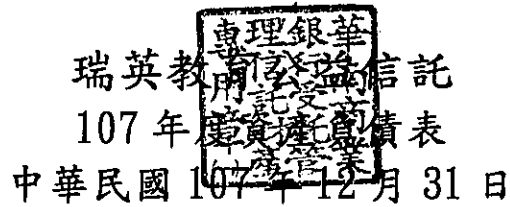 瑞英教育公益信託
107 年度資產負債表
中華民國 107 年 12 月 31 日